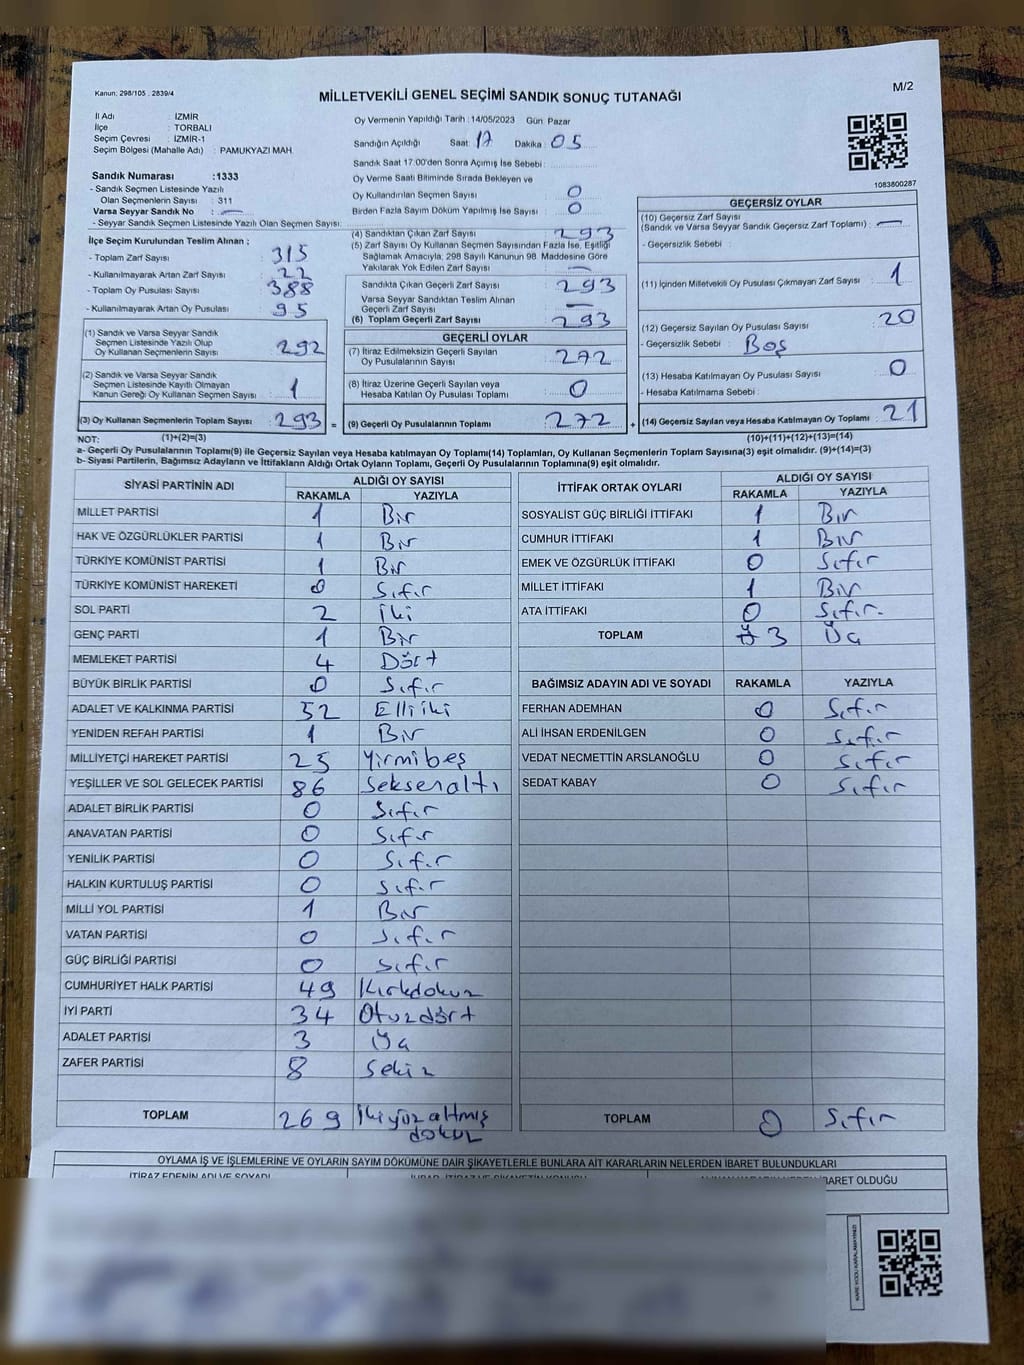 Kanun: 298/105 . 2839/4
M/2
MİLLETVEKİLİ GENEL SEÇİMİ SANDIK SONUÇ TUTANAĞI
İl Adı : İZMİR
İlçe : TORBALI
Seçim Çevresi : İZMİR-1
Seçim Bölgesi (Mahalle Adı) : PAMUKYAZI MAH.
Sandık Numarası :1333
- Sandık Seçmen Listesinde Yazılı
Olan Seçmenlerin Sayısı : 311
Varsa Seyyar Sandık No : —
- Seyyar Sandık Seçmen Listesinde Yazılı Olan Seçmen Sayısı:
İlçe Seçim Kurulundan Teslim Alınan ;
- Toplam Zarf Sayısı : 315
- Kullanılmayarak Artan Zarf Sayısı : 22
- Toplam Oy Pusulası Sayısı : 388
- Kullanılmayarak Artan Oy Pusulası : 95
(1) Sandık ve Varsa Seyyar Sandık
Seçmen Listesinde Yazılı Olup
Oy Kullanan Seçmenlerin Sayısı : 292
(2) Sandık ve Varsa Seyyar Sandık
Seçmen Listesinde Kayıtlı Olmayan
Kanun Gereği Oy Kullanan Seçmen Sayısı : 1
(3) Oy Kullanan Seçmenlerin Toplam Sayısı : 293 =
Oy Vermenin Yapıldığı Tarih :14/05/2023 Gün: Pazar
Sandığın Açıldığı Saat : 17 Dakika : 05
Sandık Saat 17:00'den Sonra Açılmış İse Sebebi :
Oy Verme Saati Bitiminde Sırada Bekleyen ve
Oy Kullandırılan Seçmen Sayısı : 0
Birden Fazla Sayım Döküm Yapılmış İse Sayısı : 0
(4) Sandıktan Çıkan Zarf Sayısı : 293
(5) Zarf Sayısı Oy Kullanan Seçmen Sayısından Fazla İse, Eşitliği
Sağlamak Amacıyla; 298 Sayılı Kanunun 98. Maddesine Göre
Yakılarak Yok Edilen Zarf Sayısı : —
Sandıkta Çıkan Geçerli Zarf Sayısı : 293
Varsa Seyyar Sandıktan Teslim Alınan
Geçerli Zarf Sayısı : —
(6) Toplam Geçerli Zarf Sayısı : 293
GEÇERLİ OYLAR
(7) İtiraz Edilmeksizin Geçerli Sayılan
Oy Pusulalarının Sayısı : 272
(8) İtiraz Üzerine Geçerli Sayılan veya
Hesaba Katılan Oy Pusulası Toplamı : 0
(9) Geçerli Oy Pusulalarının Toplamı : 272 +
1083800287
GEÇERSİZ OYLAR
(10) Geçersiz Zarf Sayısı
(Sandık ve Varsa Seyyar Sandık Geçersiz Zarf Toplamı) : —
- Geçersizlik Sebebi :
(11) İçinden Milletvekili Oy Pusulası Çıkmayan Zarf Sayısı : 1
(12) Geçersiz Sayılan Oy Pusulası Sayısı : 20
- Geçersizlik Sebebi : Boş
(13) Hesaba Katılmayan Oy Pusulası Sayısı : 0
- Hesaba Katılmama Sebebi :
(14) Geçersiz Sayılan veya Hesaba Katılmayan Oy Toplamı : 21
NOT: (1)+(2)=(3) (10)+(11)+(12)+(13)=(14)
a- Geçerli Oy Pusulaları Toplamı(9) ile Geçersiz Sayılan veya Hesaba katılmayan Oy Toplamı(14) Toplamları, Oy Kullanan Seçmenlerin Toplam Sayısına(3) eşit olmalıdır. (9)+(14)=(3)
b- Siyasi Partilerin, Bağımsız Adayların ve İttifakların Aldığı Ortak Oyların Toplamı, Geçerli Oy Pusulalarının Toplamına(9) eşit olmalıdır.
SİYASİ PARTİNİN ADI ALDIĞI OY SAYISI
RAKAMLA YAZIYLA
MİLLET PARTİSİ 1 Bir
HAK VE ÖZGÜRLÜKLER PARTİSİ 1 Bir
TÜRKİYE KOMÜNİST PARTİSİ 1 Bir
TÜRKİYE KOMÜNİST HAREKETİ 0 Sıfır
SOL PARTİ 2 İki
GENÇ PARTİ 1 Bir
MEMLEKET PARTİSİ 4 Dört
BÜYÜK BİRLİK PARTİSİ 0 Sıfır
ADALET VE KALKINMA PARTİSİ 52 Elliiki
YENİDEN REFAH PARTİSİ 1 Bir
MİLLİYETÇİ HAREKET PARTİSİ 25 Yirmibeş
YEŞİLLER VE SOL GELECEK PARTİSİ 86 Seksenaltı
ADALET BİRLİK PARTİSİ 0 Sıfır
ANAVATAN PARTİSİ 0 Sıfır
YENİLİK PARTİSİ 0 Sıfır
HALKIN KURTULUŞ PARTİSİ 0 Sıfır
MİLLİ YOL PARTİSİ 1 Bir
VATAN PARTİSİ 0 Sıfır
GÜÇ BİRLİĞİ PARTİSİ 0 Sıfır
CUMHURİYET HALK PARTİSİ 49 Kırkdokuz
İYİ PARTİ 34 Otuzdört
ADALET PARTİSİ 3 Üç
ZAFER PARTİSİ 8 Sekiz
TOPLAM 269 İkiyüzaltmış
dokuz
İTTİFAK ORTAK OYLARI ALDIĞI OY SAYISI
RAKAMLA YAZIYLA
SOSYALİST GÜÇ BİRLİĞİ İTTİFAKI 1 Bir
CUMHUR İTTİFAKI 1 Bir
EMEK VE ÖZGÜRLÜK İTTİFAKI 0 Sıfır
MİLLET İTTİFAKI 1 Bir
ATA İTTİFAKI 0 Sıfır.
TOPLAM 3 Üç
BAĞIMSIZ ADAYIN ADI VE SOYADI RAKAMLA YAZIYLA
FERHAN ADEMHAN 0 Sıfır
ALİ İHSAN ERDENİLGEN 0 Sıfır
VEDAT NECMETTİN ARSLANOĞLU 0 Sıfır
SEDAT KABAY 0 Sıfır
TOPLAM 0 Sıfır
OYLAMA İŞ VE İŞLEMLERİNE VE OYLARIN SAYIM DÖKÜMÜNE DAİR ŞİKAYETLERLE BUNLARA AİT KARARLARIN NELERDEN İBARET BULUNDUKLARI
İTİRAZ EDENİN ADI VE SOYADI
İBARET OLDUĞU